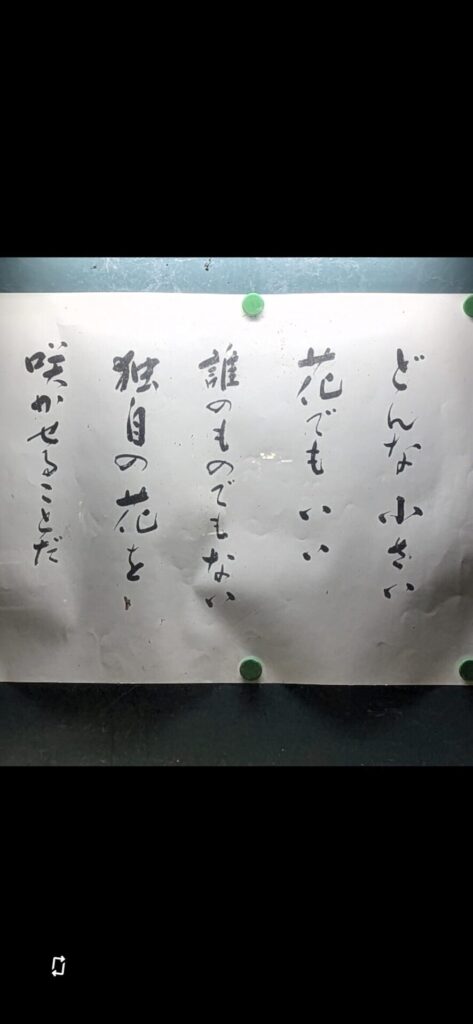 どんな小さい
花でもいい
誰のものでもない
独自の花を
咲かせることだ